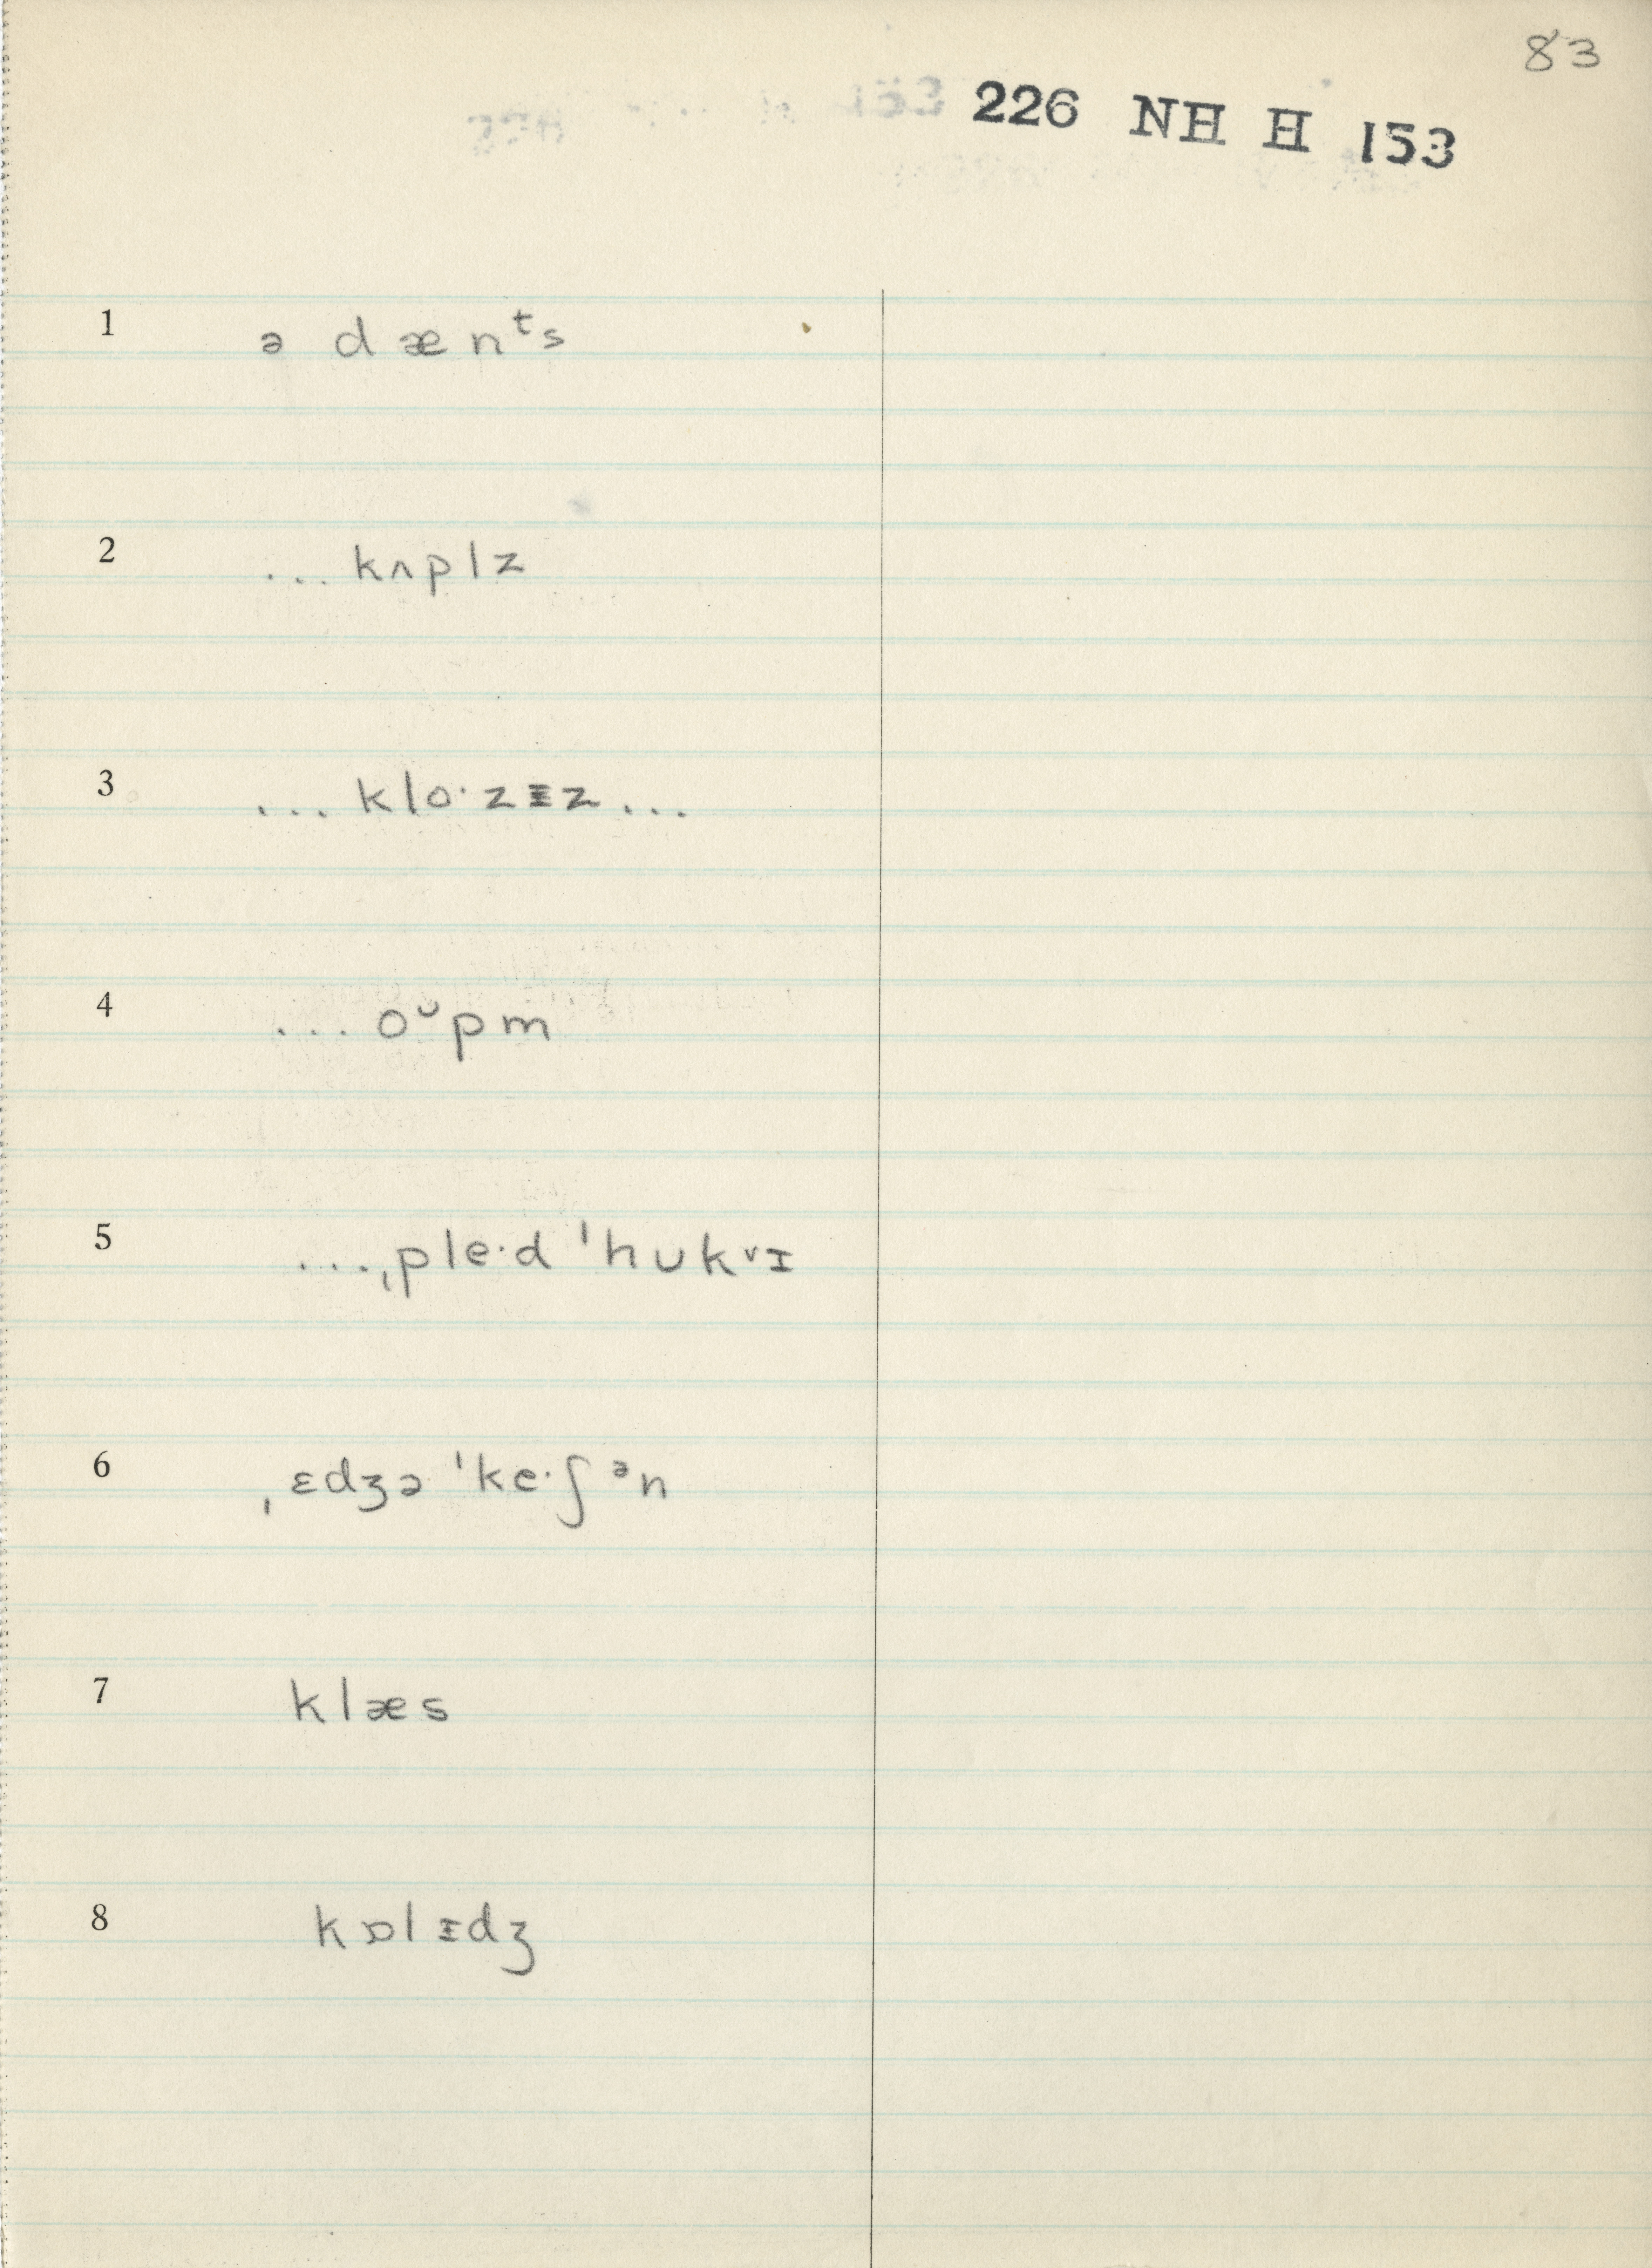 83
226 NH H 153
1 ə dænᵗs
2 ... kʌplz
3 ... klo·zɪ̵z ...
4 ... oᵛpm
5 ...ˌple·d ˈhukᵛɪ
6 ˌɛdʒə ˈke·ʃᵊn
7 klæs
8 kɒlɪ̵dʒ